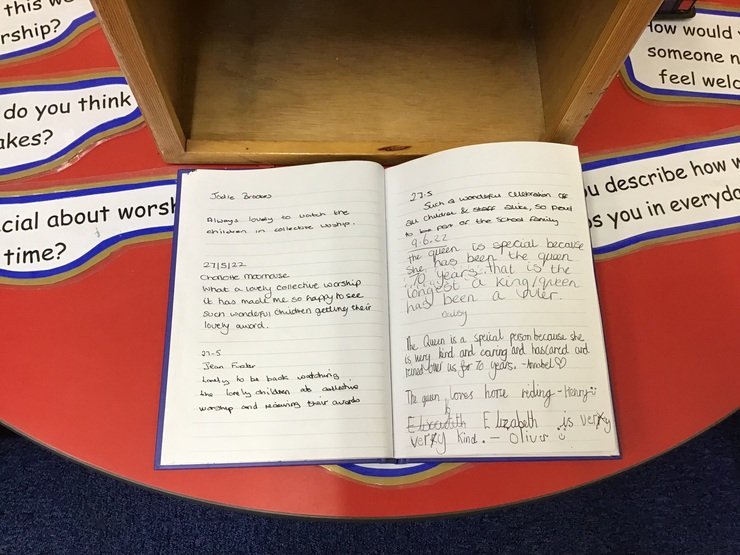 this w
rship?
do you think
akes?
cial about worsh
time?
How would
someone n
feel welc
u describe how w
ps you in everyda
Jodie Brookes
Always lovely to watch the
children in collective worship.
27/5/22
Charlotte
What a lovely collective worship
it has made me so happy to see
such wonderful children getting their
lovely award.
27-5
Jean Foster
Lovely to be back watching
the lovely children at collective
worship and receiving their awards
27.5
Such a wonderful celebration of
all children & staff alike, so proud
to be part of the school family
9.6.22
the queen is special because
she has been the queen
70 years that is the
longest a king/queen
has been a ruler.
The Queen is a speical person because she
is very kind and caring and has cared and
reined over us for 70 years. - Annabel ♡
The queen loves horse riding - Henry
Elizabeth is very
very kind. - Oliver